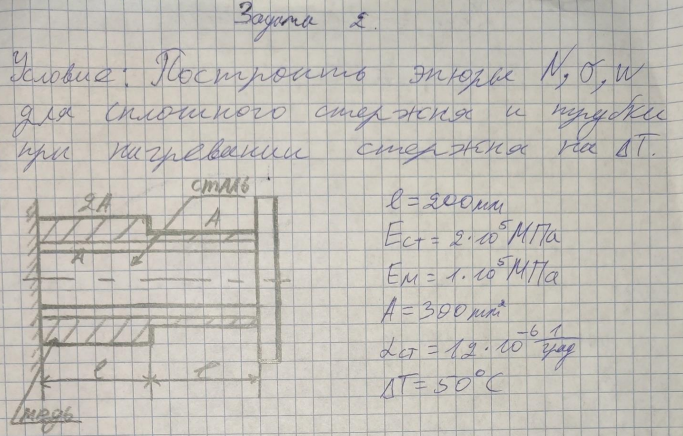 Задача 2.
Условие: Построить эпюры N, σ, w
для сплошного стержня и трубки
при нагревании стержня на ΔT.
сталь
2A
A
A
l = 200 мм
Eст = 2·10⁵ МПа
Eм = 1·10⁵ МПа
A = 300 мм²
αст = 12·10⁻⁶ 1/град
ΔT = 50°C
l
l
медь